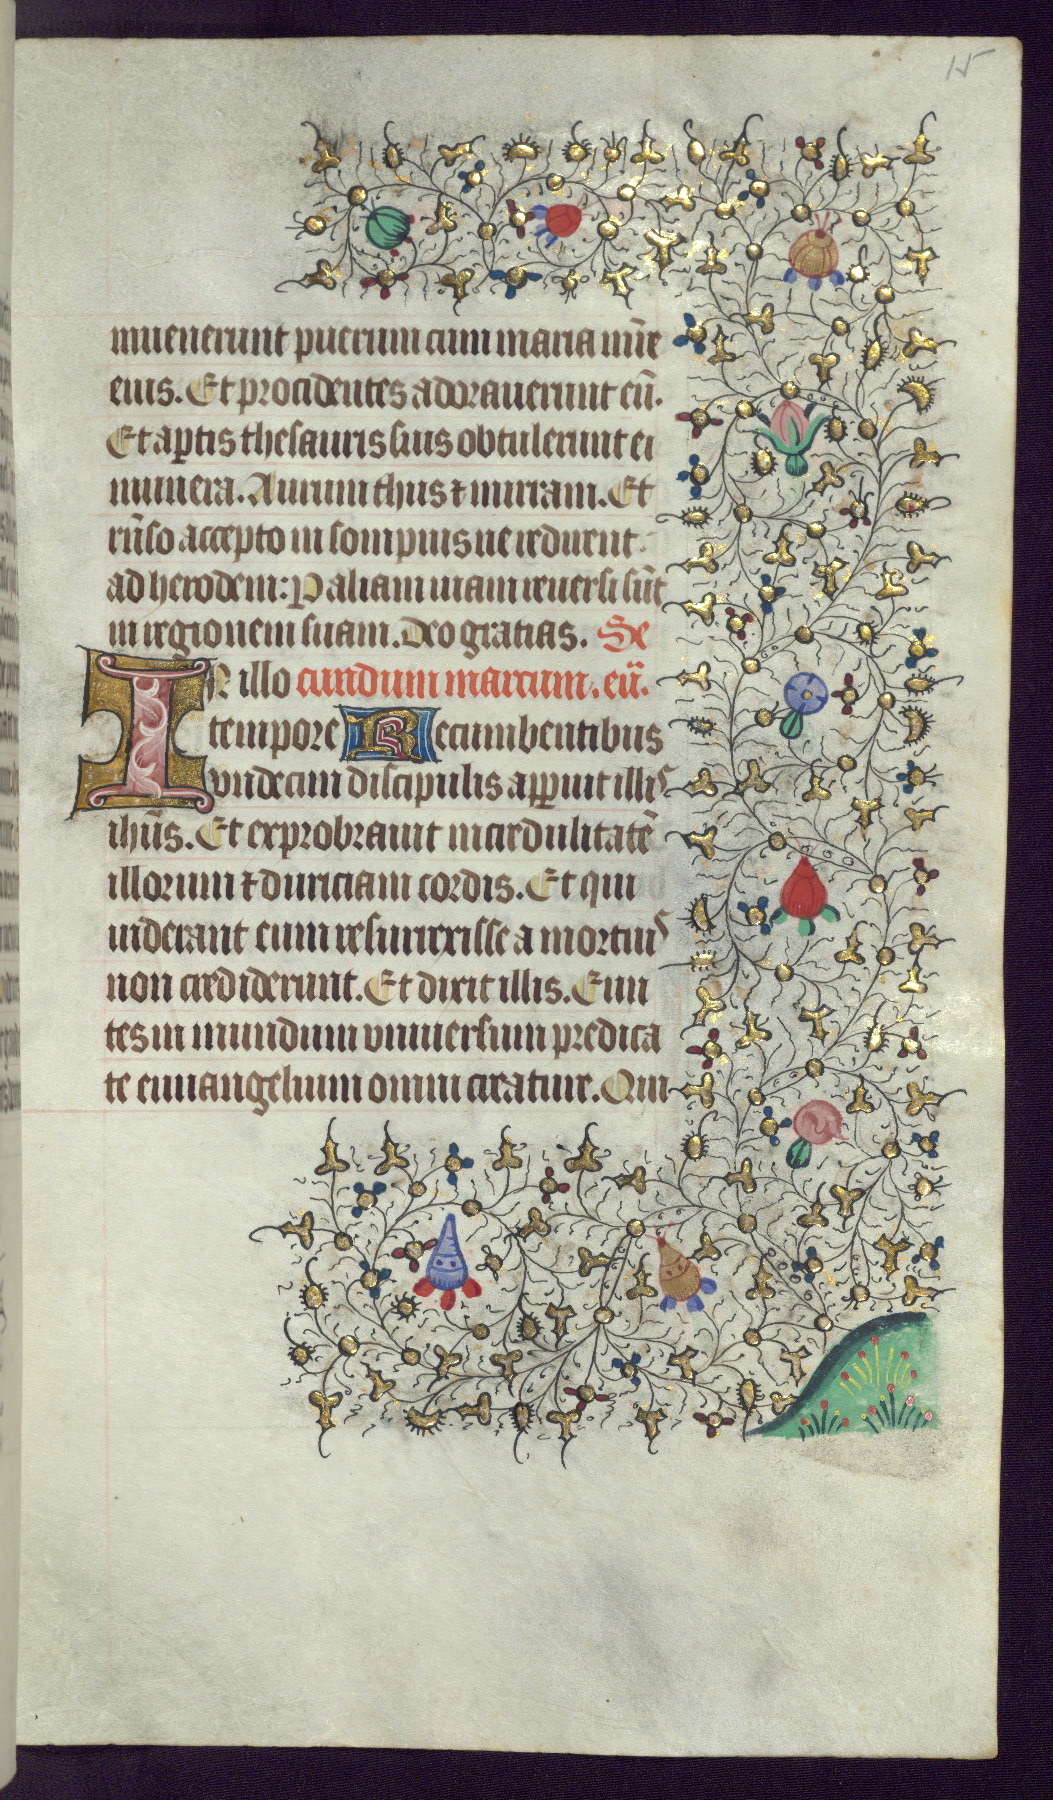 15
inuenerunt puerum cum maria mr̄e
eius. Et procidentes adorauerunt eū.
Et apertis thesauris suis obtulerunt ei
munera. Aurum thus ⁊ mirram. Et
rn̄so accepto in sompnis ne redirent
ad herodem: Per aliam uiam reuersi sūt
in regionem suam. Deo gratias. Se
IN illo cundum marcum. eū.
tempore Recumbentibus
vndecim discipulis apparuit illis
ihūs. Et exprobrauit incredulitatē
illorum ⁊ duriciam cordis. Et qui
uiderant eum resurrexisse a mortuis
non crediderunt. Et dixit illis. Eun
tes in mundum vniuersum predica
te euuangelium omni creature. Qui